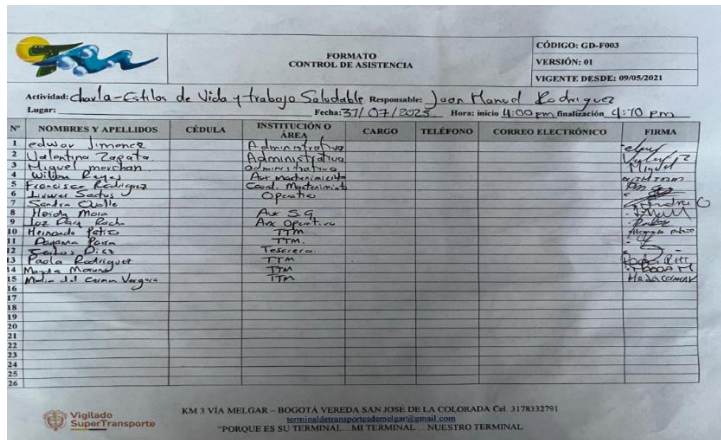 FORMATO
CONTROL DE ASISTENCIA
CÓDIGO: GD-F003
VERSIÓN: 01
VIGENTE DESDE: 09/05/2021
Actividad: charla-Estilos de Vida y trabajo Saludable Responsable: Juan Manuel Rodriguez
Lugar: Fecha: 31/07/2023 Hora: inicio 4:00 pm finalización 4:10 pm
N° NOMBRES Y APELLIDOS CÉDULA INSTITUCIÓN O ÁREA CARGO TELÉFONO CORREO ELECTRÓNICO FIRMA
1 edwar Jimenez Administrativa
2 Valentina Zapata Administrativa
3 Miguel merchan administrativa Miguel
4 Wilson Reyes Aux mantenimiento
5 Francisco Rodriguez Coord. Mantenimiento
6 Santos Operativo
7 Sandra Ovalle
8 Heidy Mora Aux S.G
9 Luz Dary Aux Operativo
10 Hernando Patiño TTM
11 Parra TTM.
12 Carlos Diaz Tesorero
13 Paola Rodriguez TTM
14 Magda Moreno TTM
15 Maria del Carmen Vergara TTM
16
17
18
19
20
21
22
23
24
25
26
Vigilado
SuperTransporte
KM 3 VÍA MELGAR – BOGOTÁ VEREDA SAN JOSE DE LA COLORADA Cel. 3178332791
terminaldetransportesdemelgar@gmail.com
"PORQUE ES SU TERMINAL... MI TERMINAL... NUESTRO TERMINAL